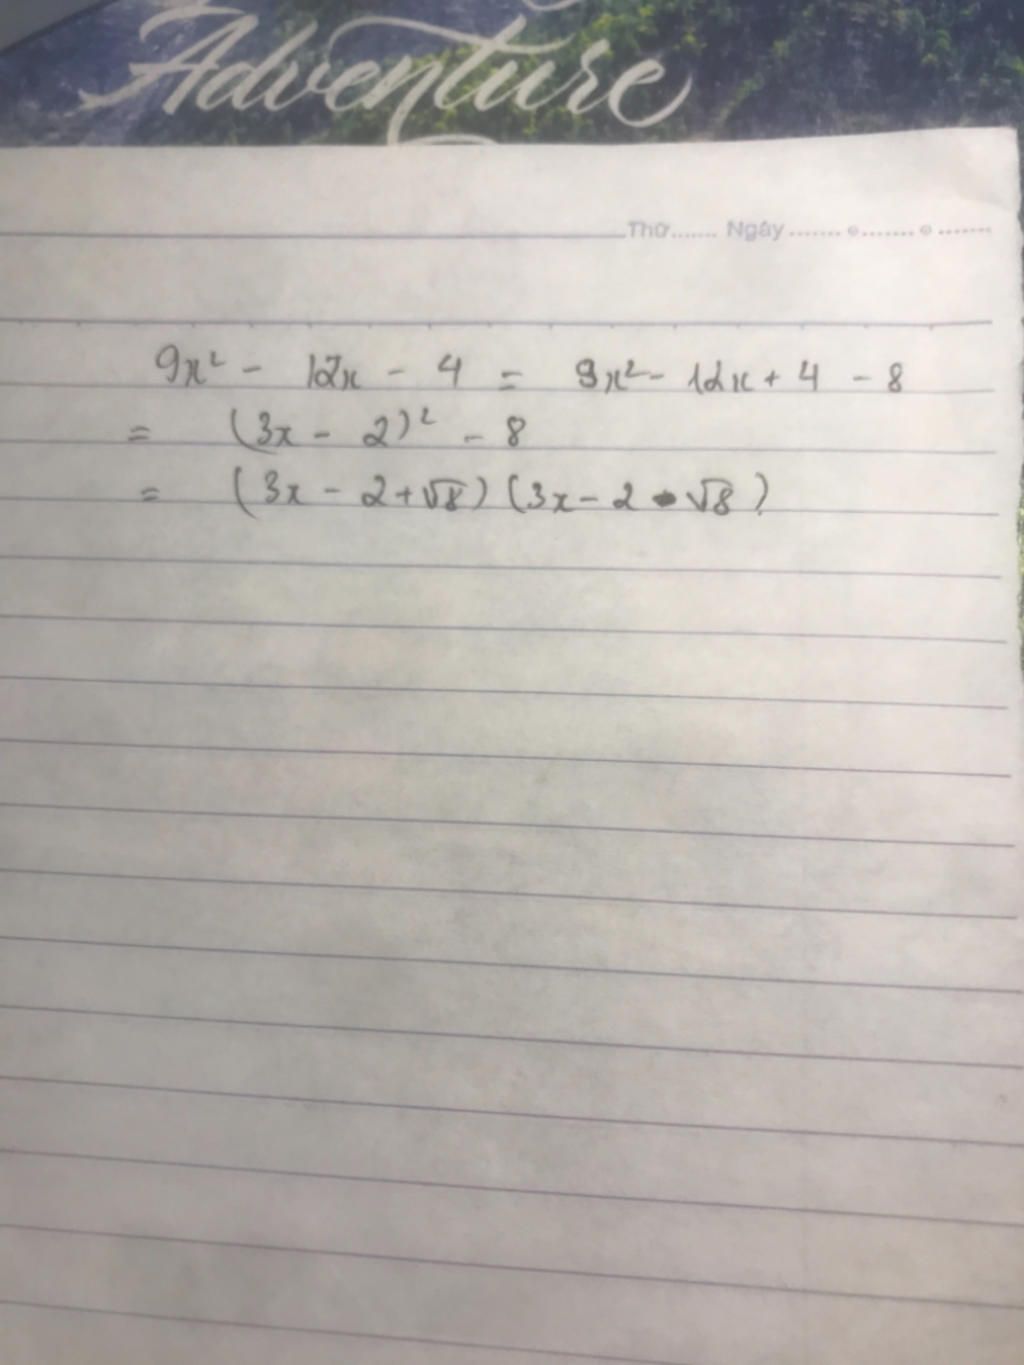 Adventure
Thứ....... Ngày ....... ......... .......
9x² - 12x - 4 = 9x² - 12x + 4 - 8
= (3x - 2)² - 8
= (3x - 2 + √8) (3x - 2 - √8)